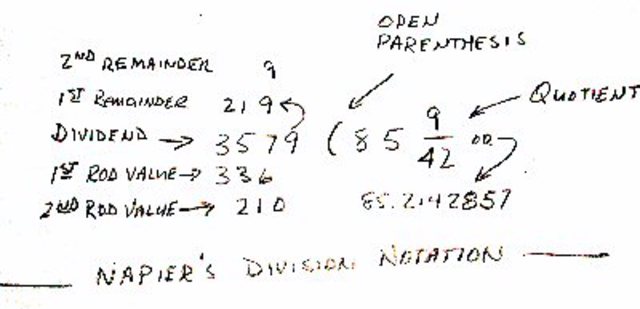 OPEN
PARENTHESIS
2ND REMAINDER 9
1ST REMAINDER 219
QUOTIENT
DIVIDEND → 3579 ( 85 9/42 OR
1ST ROD VALUE → 336
2ND ROD VALUE → 210 85.2142857
NAPIER'S DIVISION NOTATION